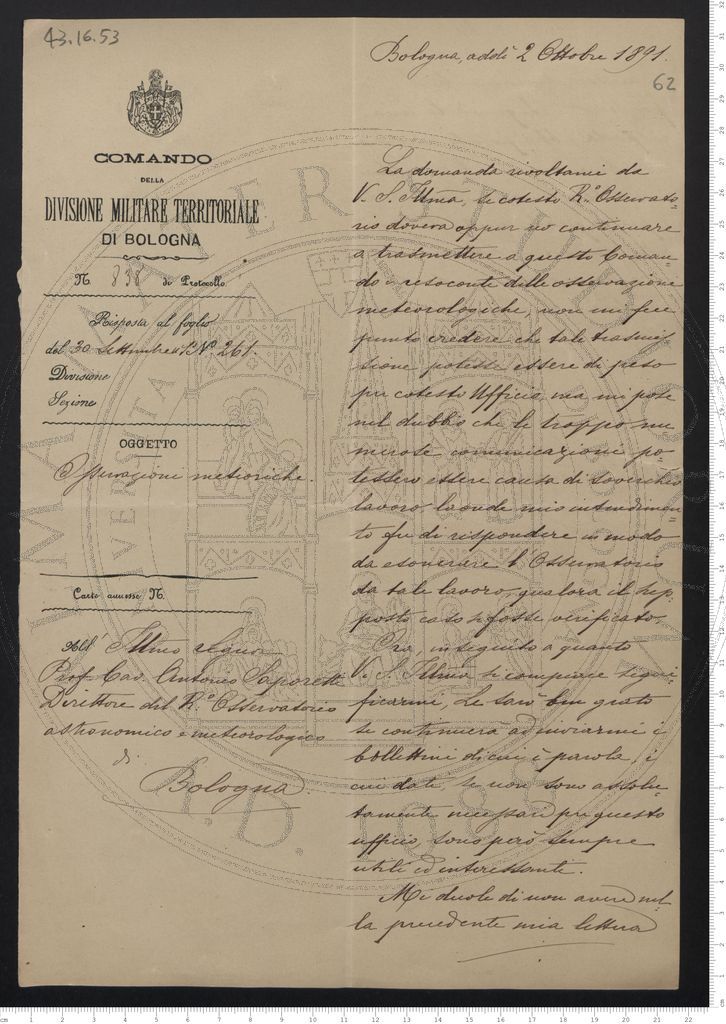 43.16.53
Bologna, addì 2 Ottobre 1891.
62
COMANDO
DELLA
DIVISIONE MILITARE TERRITORIALE
DI BOLOGNA
N. 838 di Protocollo
Risposta al foglio
del 30 Settembre N.º 261.
Divisione
Sezione
OGGETTO
Osservazioni meteoriche.
Carte annesse N.
All' Illmo Signor
Prof. Cav. Antonio Saporetti
Direttore del R.º Osservatorio
astronomico e meteorologico
di
Bologna.
La domanda rivoltami da
V. S. Illma, se cotesto R.º Osservato=
rio doveva oppur no continuare
a trasmettere a questo Coman=
do i resoconti delle osservazione
meteorologiche, non mi fece
punto credere che tale trasmis=
sione potesse essere di peso
per cotesto Ufficio, ma mi pose
nel dubbio che le troppo nu=
merose comunicazione po=
tessero essere causa di soverchio
lavoro, laonde mio intendimen=
to fu di rispondere in modo
da esonerare l'Osservatorio
da tale lavoro, qualora il sup=
posto caso si fosse verificato.
Ora, in seguito a quanto
V. S. Illma si compiace signi=
ficarmi, Le sarò ben grato
se continuerà ad inviarmi i
bollettini di cui è parola, i
cui dati, se non sono assolu=
tamente necessari per questo
ufficio, sono però sempre
utili ed interessante.
Mi duole di non avere nel=
la precedente mia lettera